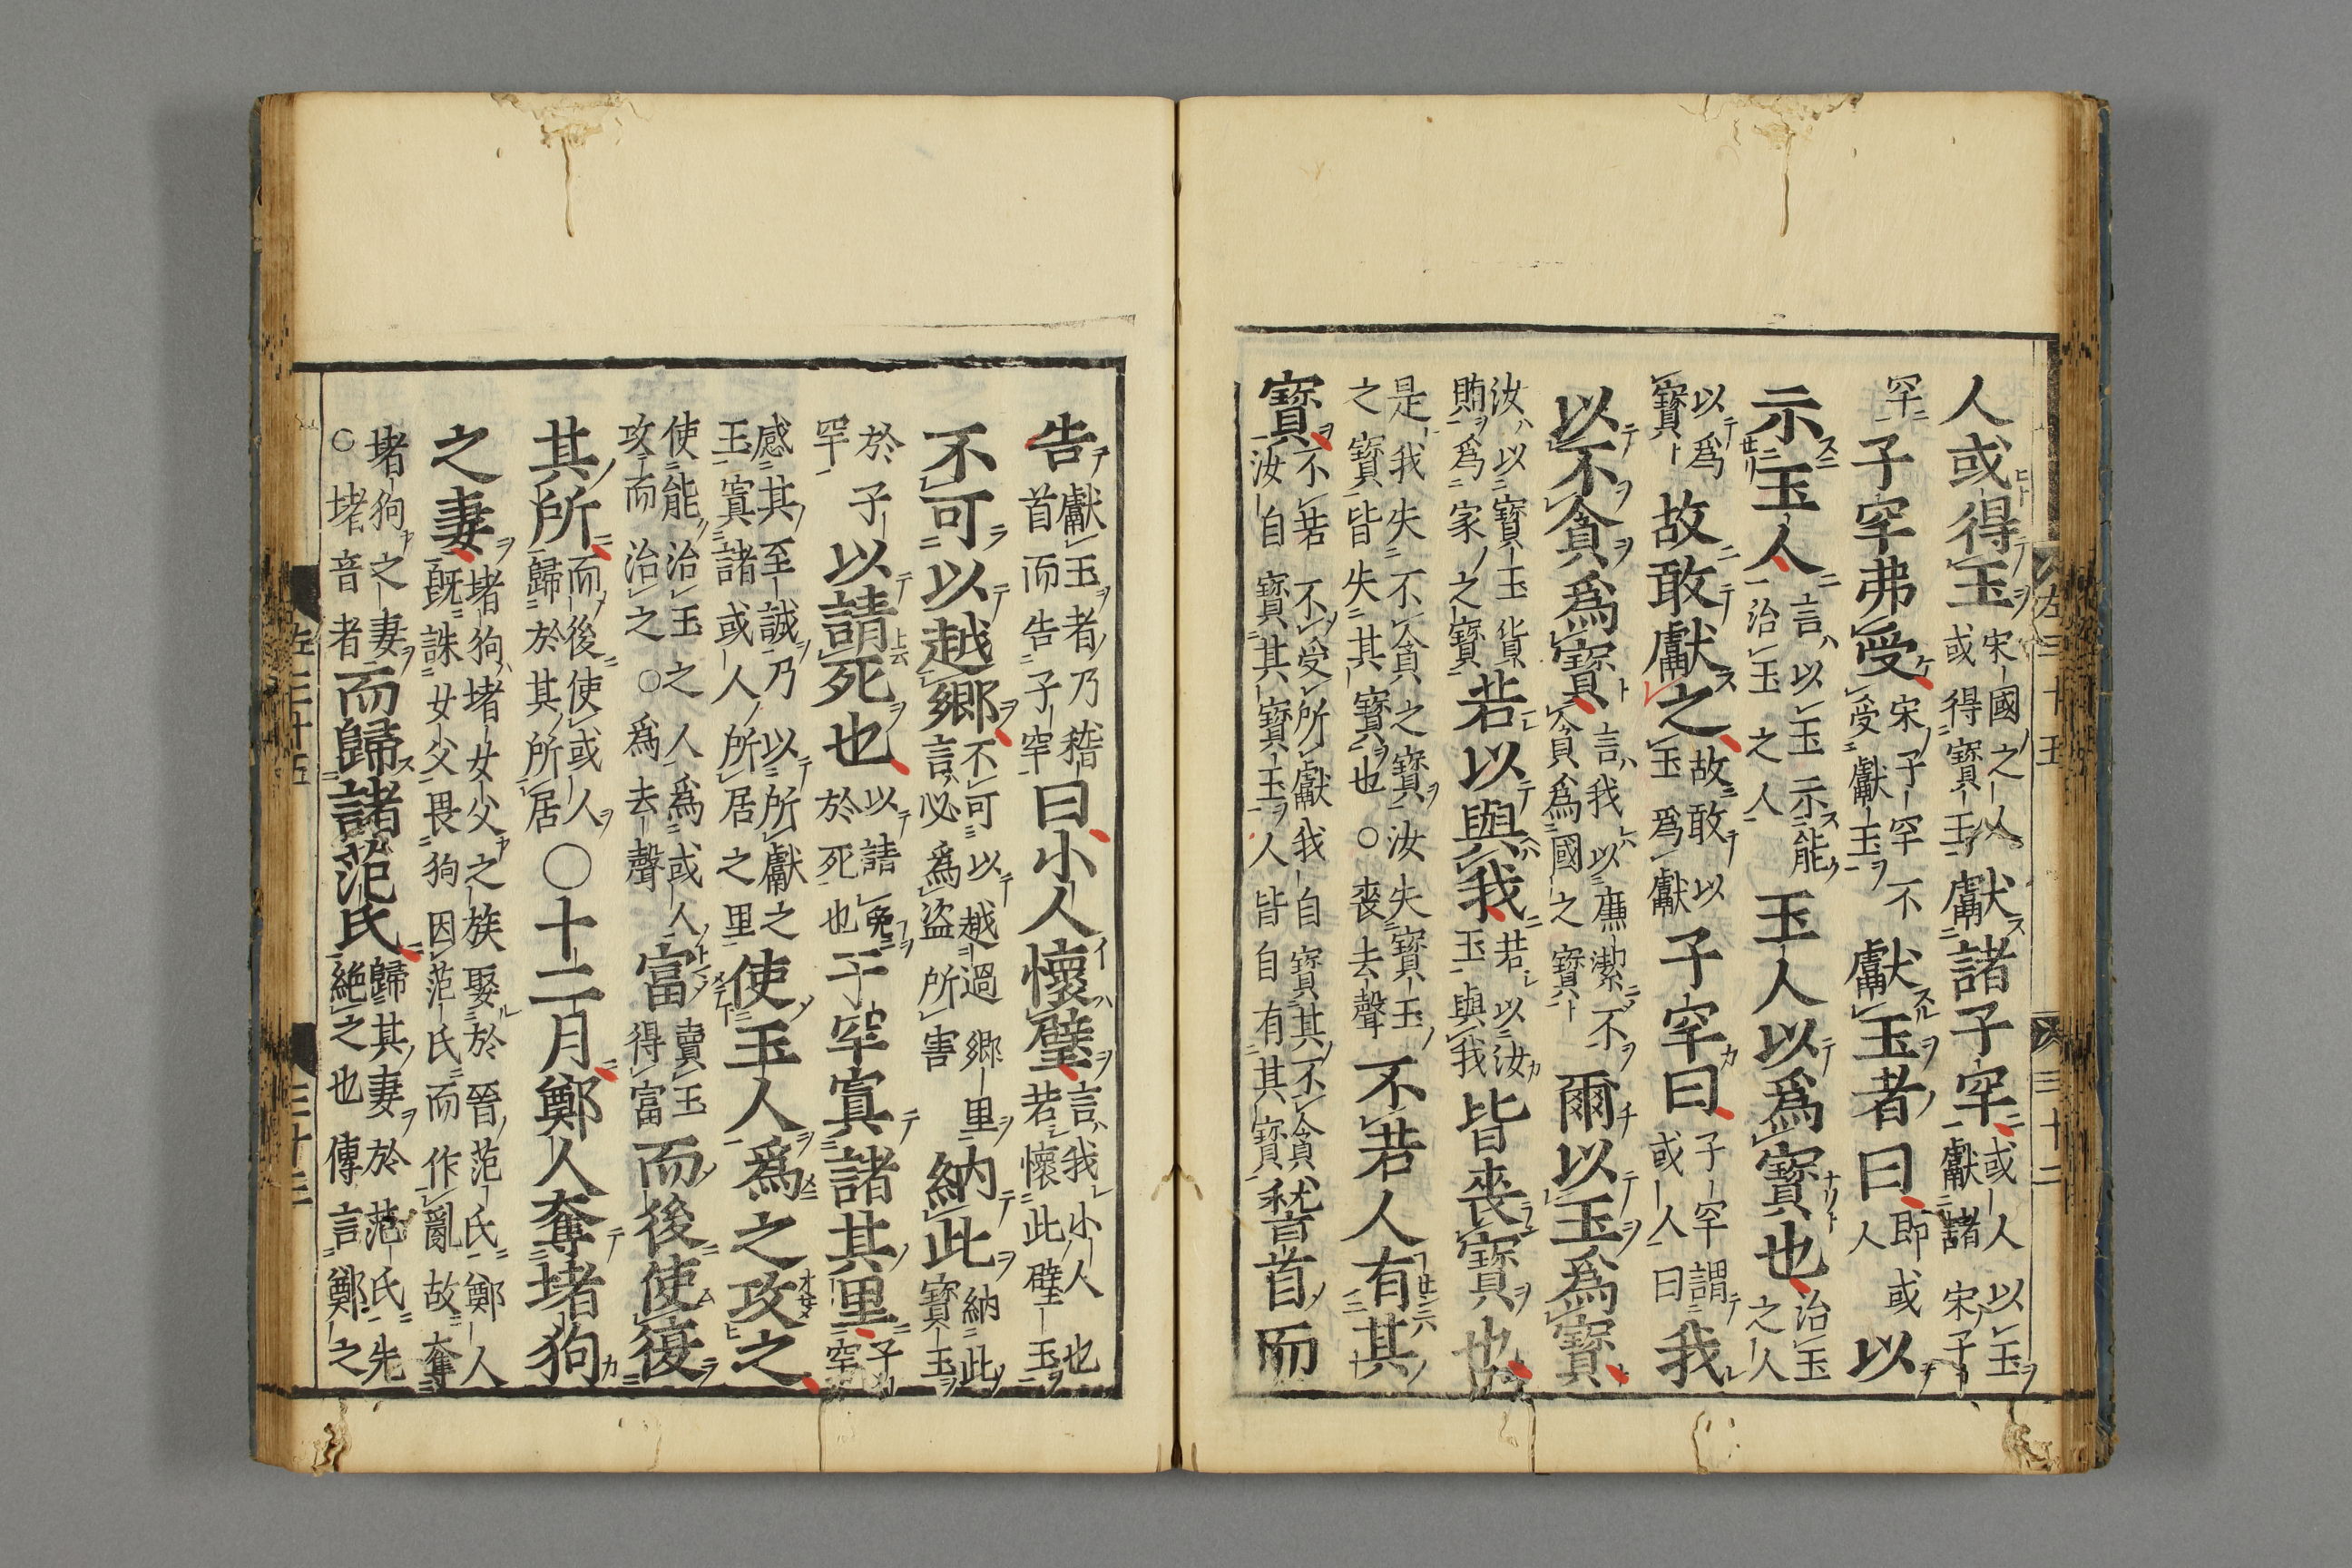 人或得玉宋國之人或得寶玉獻諸子罕或人以玉獻諸宋子
罕子罕弗受宋子罕不受獻玉獻玉者曰即或人以
示玉人言以玉示能治玉之人玉人以爲寶也治玉之人
以爲寶故敢獻之故敢以玉爲獻子罕曰子罕謂或人曰我
以不貪爲寶言我以廉潔不貪爲國之寶爾以玉爲寶
汝以寶玉貨賄爲家之寶若以與我若以汝玉與我皆喪寶也
是我失不貪之寶汝失寶玉之寶皆失其寶也○喪去聲不若人有其
寶不若不受所獻我自寶其不貪汝自寶其寶玉人皆自有其寶稽首而
告獻玉者乃稽首而告子罕曰小人懷璧言我小人也若懷此璧玉
不可以越鄉不可以越過鄉里言必爲盗所害納此納此寶玉
於子罕以請死也以請免於死也子罕寘諸其里子罕
感其至誠乃以所獻之玉寘諸或人所居之里使玉人爲之攻之
使能治玉之人爲或人攻而治之○爲去聲富賣玉得富而後使復
其所而後使或人歸於其所居○十二月鄭人奪堵狗
之妻堵狗堵女父之族娶於晉范氏鄭人既誅女父畏狗因范氏而作亂故奪
堵狗之妻○堵音者而歸諸范氏歸其妻於范氏先絶之也傳言鄭之